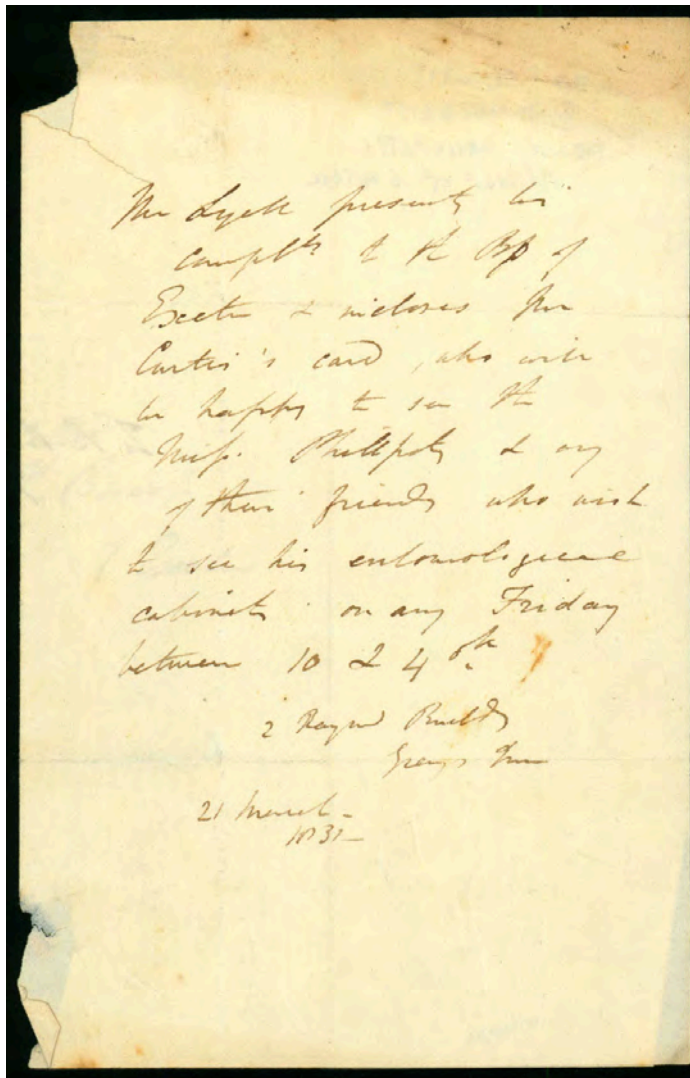 Mr Lyell presents his
complts to the Bp of
Exeter & incloses Mr
Curtis's card, who will
be happy to see the
Miss. Phillpots & any
of their friends who wish
to see his entomological
cabinets on any Friday
between 10 & 4 
2 Raymd Buildgs
Grays Inn
21 March
1831